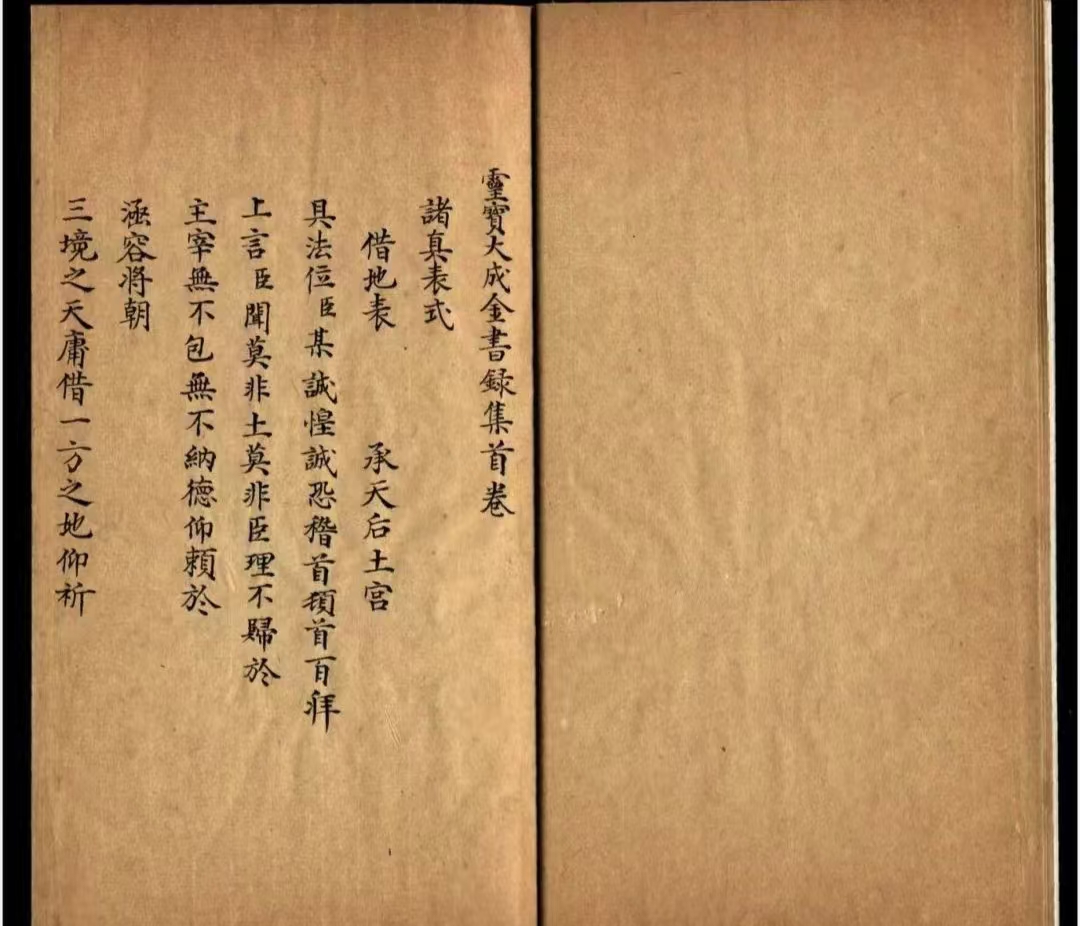 靈寶大成金書録集首卷
諸真表式
借地表　承天后土宫
具法位臣某誠惶誠恐稽首頓首百拜
上言臣聞莫非土莫非臣理不歸於
主宰無不包無不納德仰頼於
涵容将朝
三境之天庸借一方之地仰祈